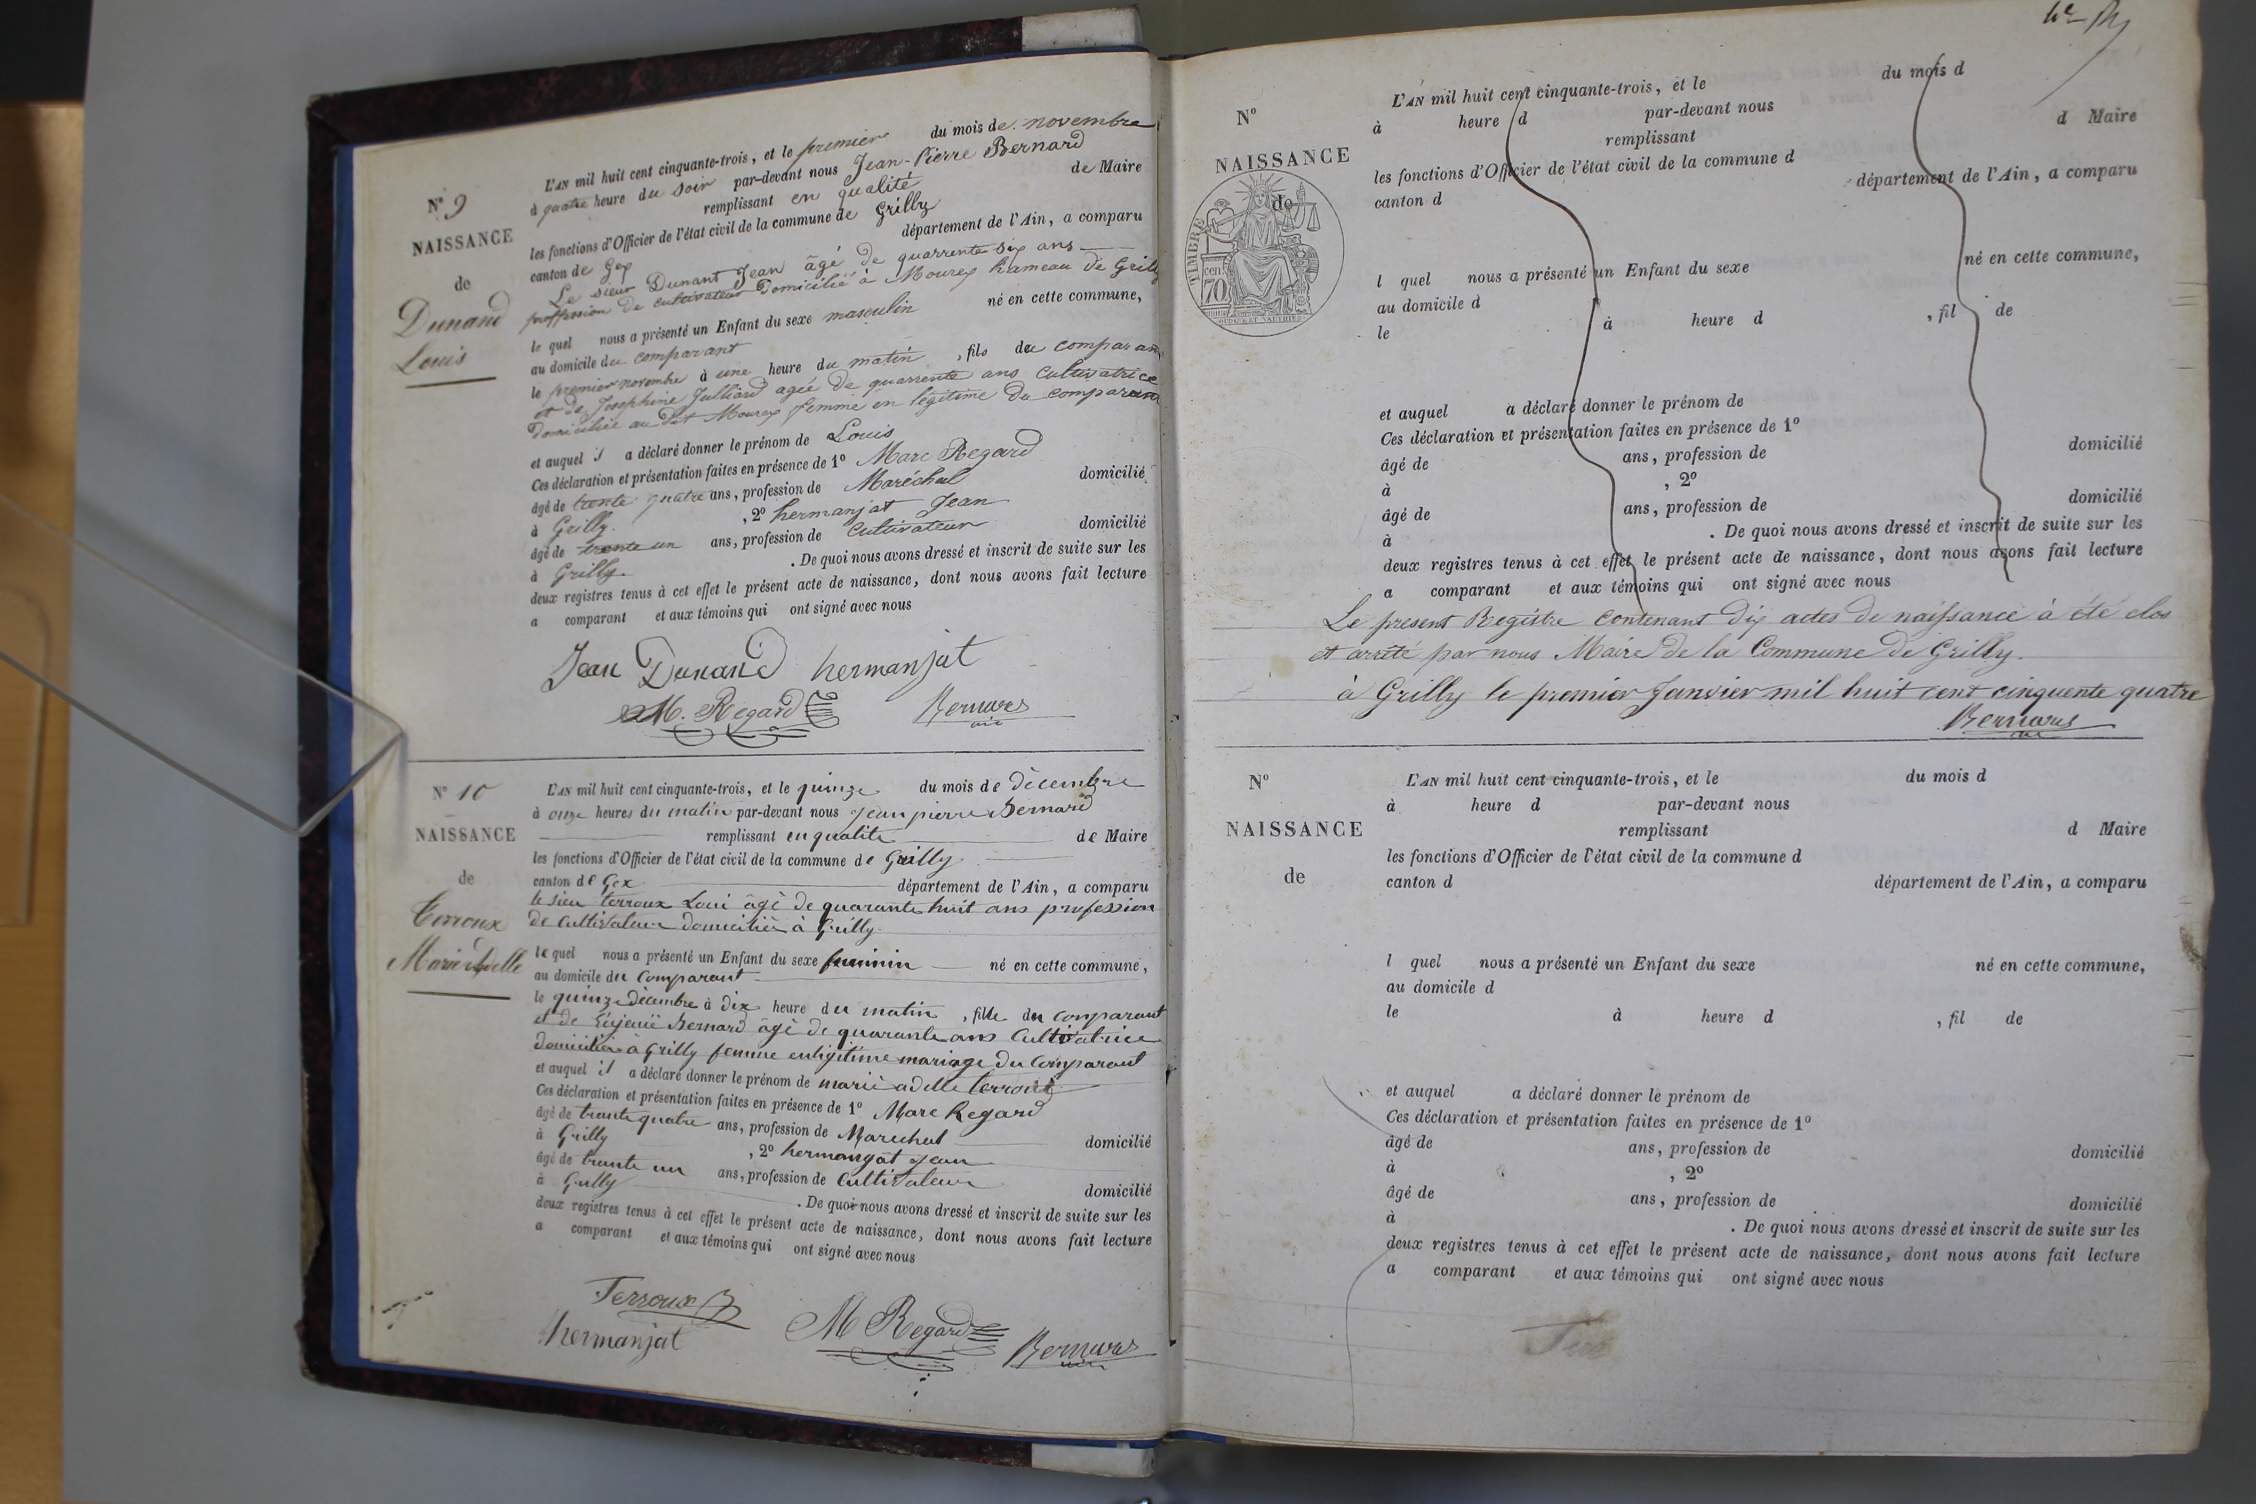 N° 9
NAISSANCE
de
Dunand
Louis
L'AN mil huit cent cinquante-trois, et le premier du mois de novembre
à quatre heure du soir par-devant nous Jean-Pierre Bernard
remplissant en qualité de Maire
les fonctions d'Officier de l'état civil de la commune de Grilly
canton de Gex département de l'Ain, a comparu
Le sieur Dunant Jean âgé de quarrente six ans
proffession de cultivateur Domicilié à Mourex hameau de Grilly
le quel nous a présenté un Enfant du sexe masculin né en cette commune,
au domicile du comparant
le premier novembre à une heure du matin, fils du comparant
et de Josephine Julliard agée de quarrente ans Cultivatrice
Domiciliée au dit Mourex femme en légitime du comparant
et auquel il a déclaré donner le prénom de Louis
Ces déclaration et présentation faites en présence de 1° Marc Regard
âgé de trente quatre ans, profession de Maréchal domicilié
à Grilly, 2° hermanjat Jean
âgé de trente un ans, profession de Cultivateur domicilié
à Grilly. De quoi nous avons dressé et inscrit de suite sur les
deux registres tenus à cet effet le présent acte de naissance, dont nous avons fait lecture
a comparant et aux témoins qui ont signé avec nous
Jean Dunand hermanjat
M. Regard Bernard
N° 10
NAISSANCE
de
Terroux
Marie Adelle
L'AN mil huit cent cinquante-trois, et le quinze du mois de décembre
à onze heures du matin par-devant nous Jean pierre Bernard
remplissant en qualite de Maire
les fonctions d'Officier de l'état civil de la commune de Grilly
canton de Gex département de l'Ain, a comparu
le sieu terroux Loui âgè de quarante huit ans profession
de cultivateur domicilièe à Grilly
le quel nous a présenté un Enfant du sexe feminin né en cette commune,
au domicile du Comparant
le quinze décembre à dix heure du matin, fille du comparant
et de Bernard âgè de quarante ans Cultivatrice
domicilièe à Grilly femme enligitime mariage du Comparant
et auquel il a déclaré donner le prénom de marie adelle terroux
Ces déclaration et présentation faites en présence de 1° Marc Regard
âgé de trante quatre ans, profession de Marechal domicilié
à Grilly, 2° hermangat Jean
âgé de trante un ans, profession de Cultivateur domicilié
à Grilly. De quoi nous avons dressé et inscrit de suite sur les
deux registres tenus à cet effet le présent acte de naissance, dont nous avons fait lecture
a comparant et aux témoins qui ont signé avec nous
Terroux
hermanjat M Regard Bernard
N°
NAISSANCE
de
TIMBRE
70 cen
L'AN mil huit cent cinquante-trois, et le du mois d
à heure d par-devant nous
remplissant d Maire
les fonctions d'Officier de l'état civil de la commune d
canton d département de l'Ain, a comparu
l quel nous a présenté un Enfant du sexe né en cette commune,
au domicile d
le à heure d , fil de
et auquel a déclaré donner le prénom de
Ces déclaration et présentation faites en présence de 1°
âgé de ans, profession de domicilié
à , 2°
âgé de ans, profession de domicilié
à . De quoi nous avons dressé et inscrit de suite sur les
deux registres tenus à cet effet le présent acte de naissance, dont nous avons fait lecture
a comparant et aux témoins qui ont signé avec nous
Le present Registre contenant dix actes de naissance à été clos
et arrêté par nous Maire de la Commune de Grilly.
à Grilly le premier Janvier mil huit cent cinquente quatre
Bernard
N°
NAISSANCE
de
L'AN mil huit cent cinquante-trois, et le du mois d
à heure d par-devant nous
remplissant d Maire
les fonctions d'Officier de l'état civil de la commune d
canton d département de l'Ain, a comparu
l quel nous a présenté un Enfant du sexe né en cette commune,
au domicile d
le à heure d , fil de
et auquel a déclaré donner le prénom de
Ces déclaration et présentation faites en présence de 1°
âgé de ans, profession de domicilié
à , 2°
âgé de ans, profession de domicilié
à . De quoi nous avons dressé et inscrit de suite sur les
deux registres tenus à cet effet le présent acte de naissance, dont nous avons fait lecture
a comparant et aux témoins qui ont signé avec nous